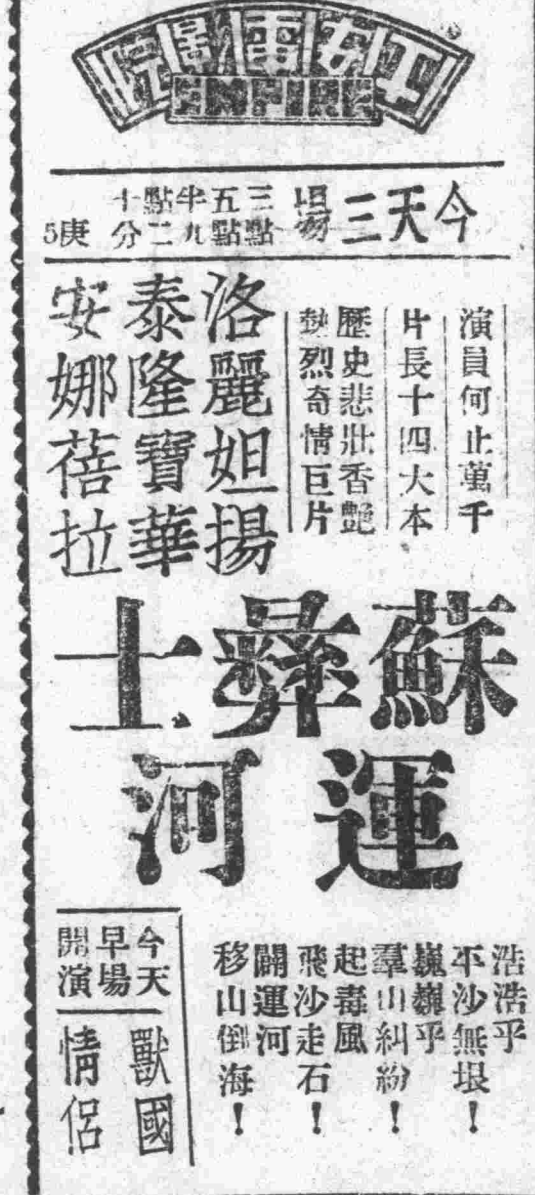 平安電影院
EMPIRE
今天三場
三點
五點
半九
點二
十分
庚5
演員何止萬千
片長十四大本
歷史悲壯香艷
熱烈奇情巨片
洛麗妲揚
泰隆寶華
安娜蓓拉
蘇彝士
運河
浩浩乎
平沙無垠！
巍巍乎
羣山糾紛！
起毒風
飛沙走石！
闢運河
移山倒海！
今天
早場
開演
獸國
情侶